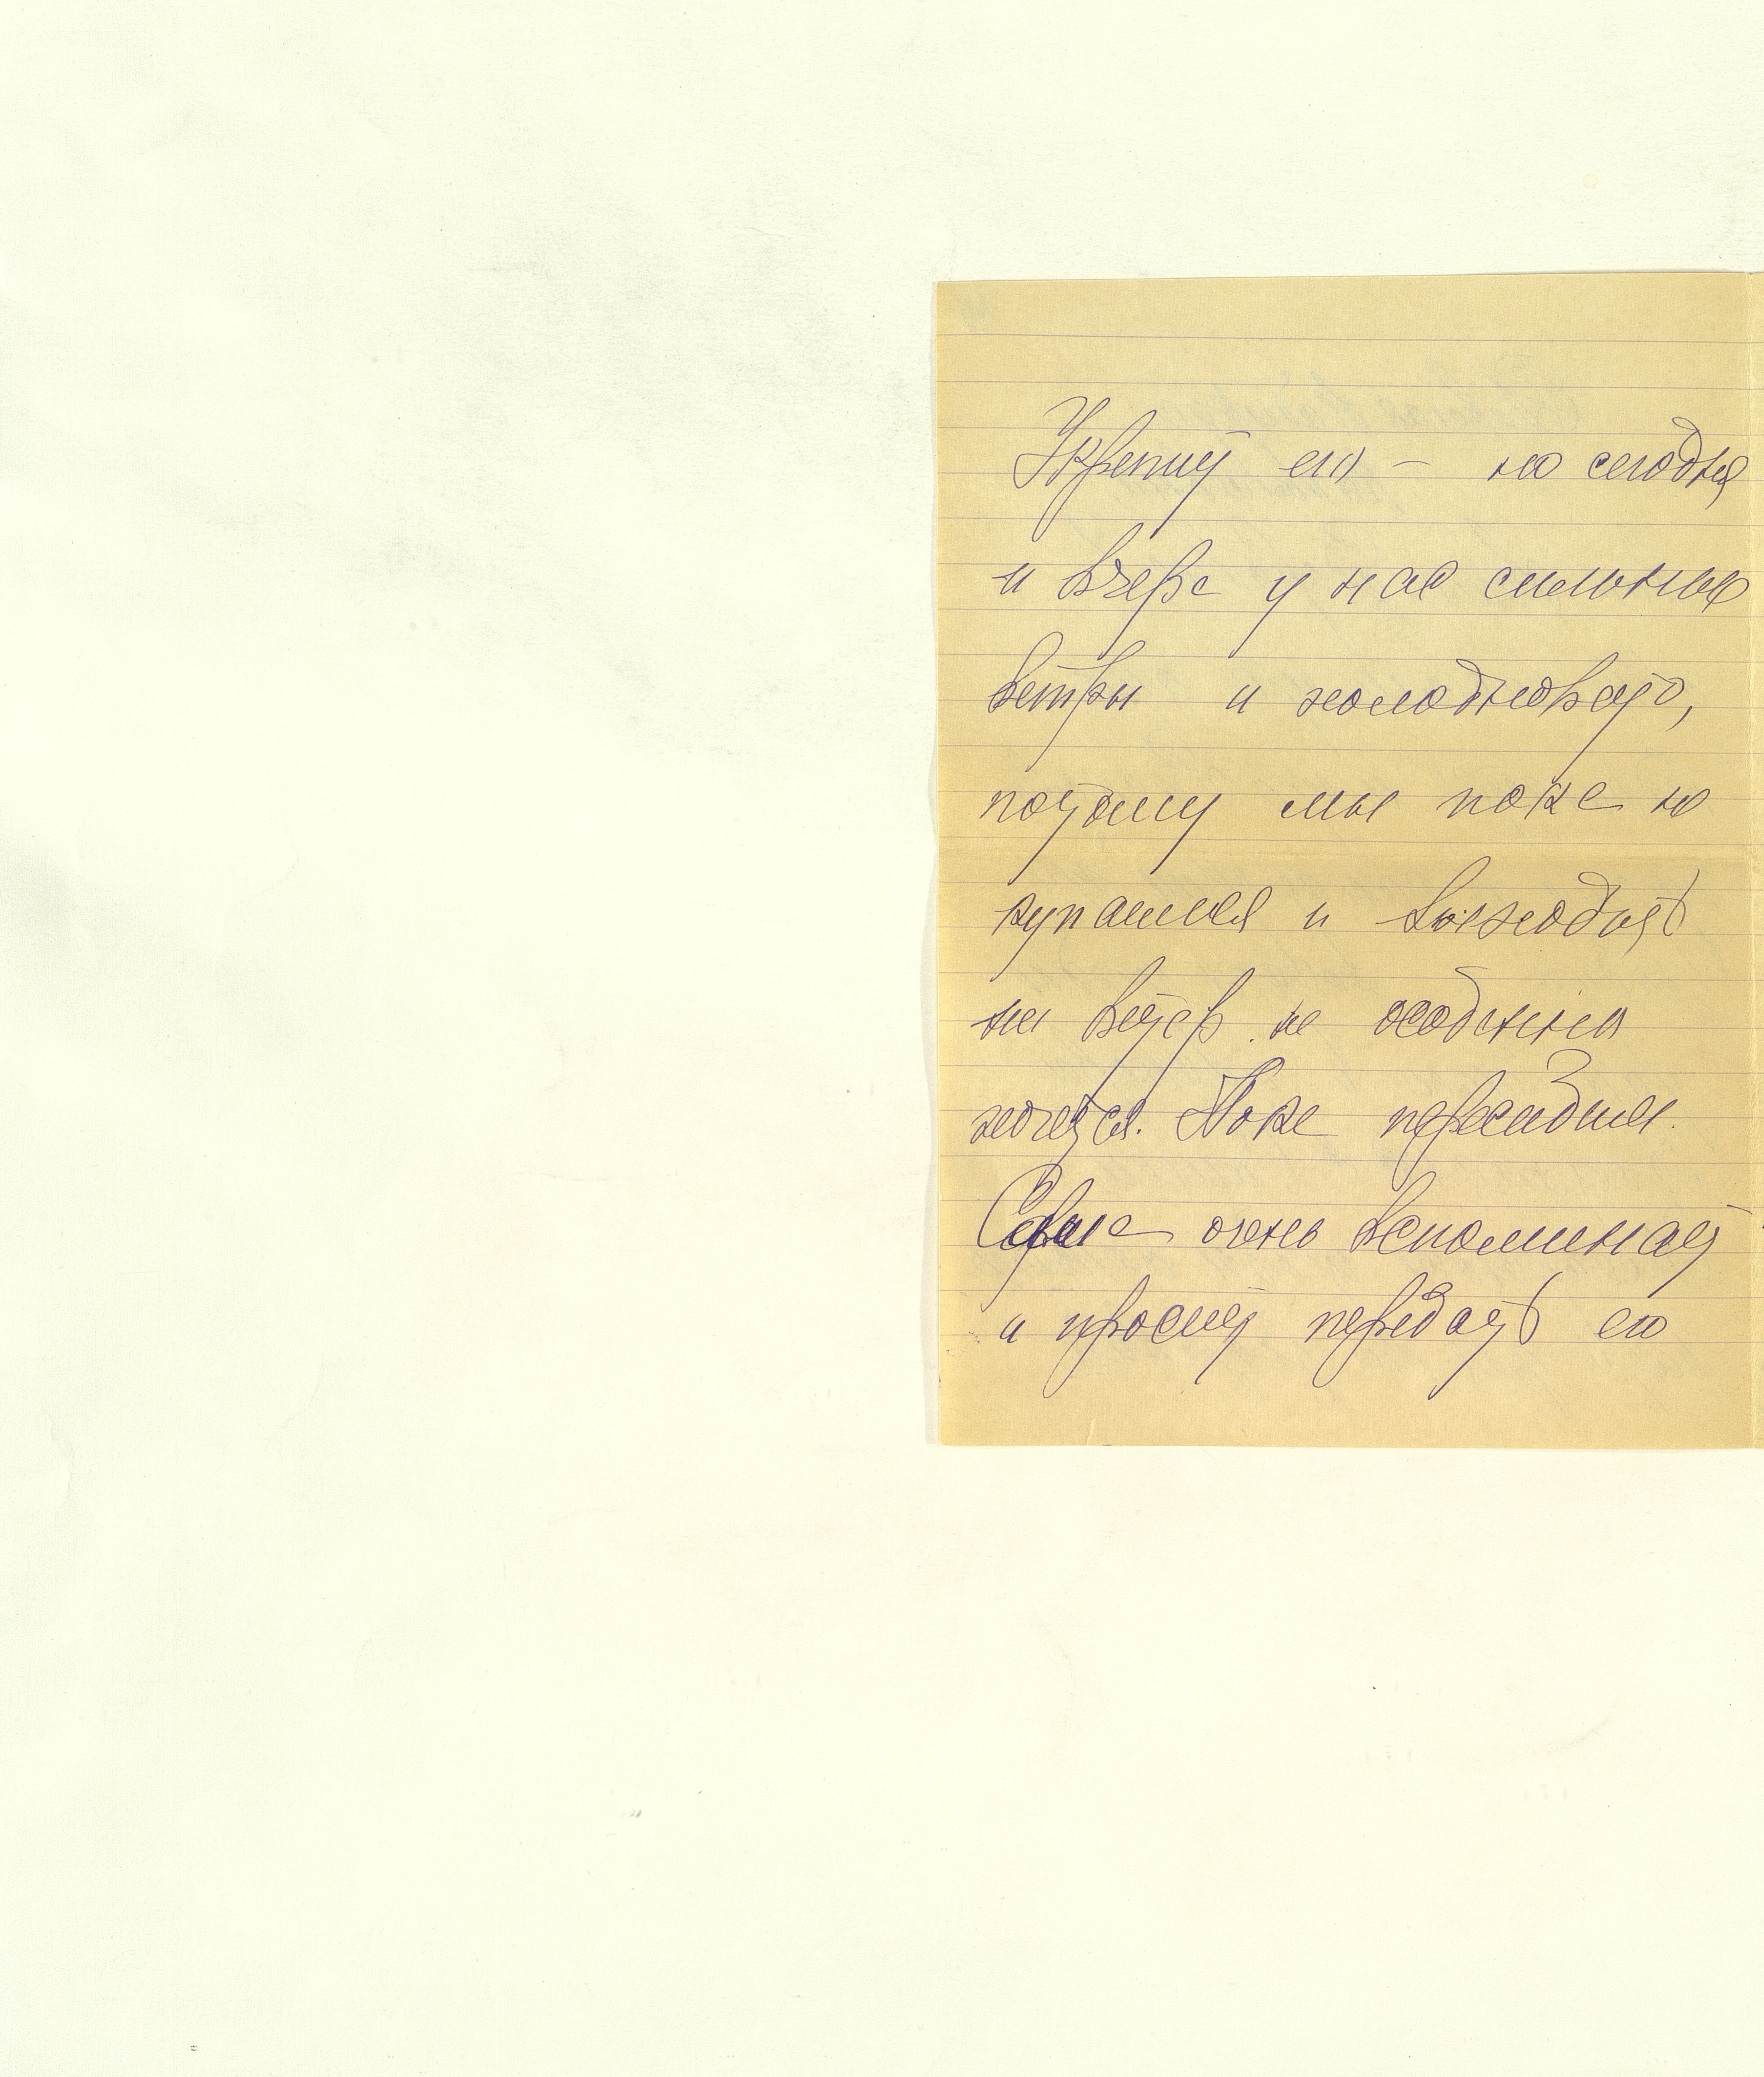 Укрепит его — но сегодня
и вчера у нас сильные
ветры и холодновато,
потому мы пока не
купаемся и выходить
на ветер не особенно
хочется. Пока пересидим.
очень вспоминает
и просит передать его